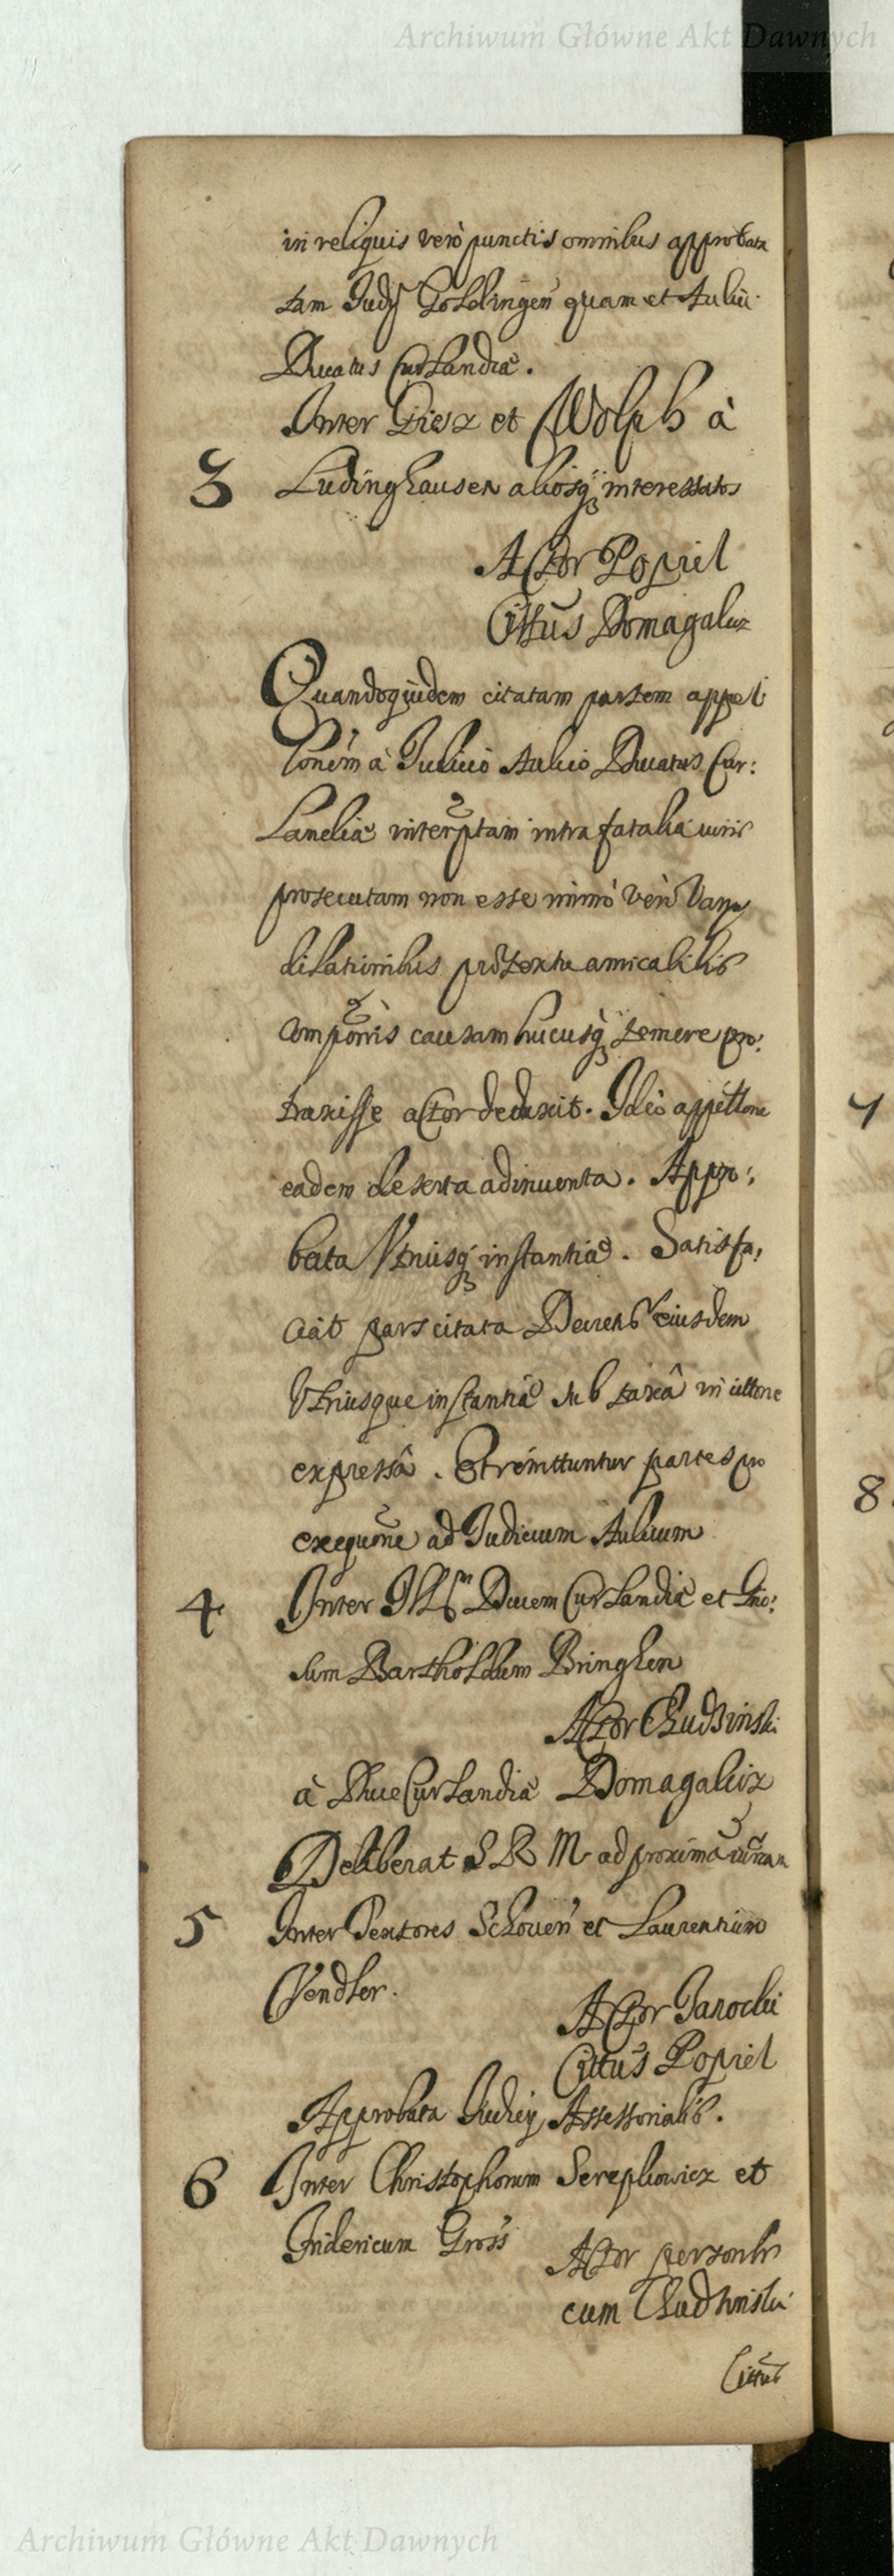 Archiwum Główne Akt Dawnych
in reliquis verò punctis omnibus approbata
tam Judij Goldingen quam et Aulici
Ducatus Curlandiæ.
Inter Giesz et Wolph à
3 Ludinghausen aliosq interessatos
Actor Popiel
Cittus Domagalicz
Quandoquidem citatam partem appel:
lonem à Judicio Aulico Ducatus Cur:
landiæ interptam intra fatalia iuris
prosecutam non esse nimò verò varijs
dilationibus prætextu amicabilis
componis causam hucusq temere pro:
traxisse actor deduxit. Ideò appellone
eadem deserta adinuenta. Appro:
bata Vtriusq instantiæ. Satisfa:
ciat pars citata Decretis eiusdem
Vtriusque instantiæ sub taxâ in
expressâ. Et remittuntur partes pro
exequone ad Judicium Aulicum
4 Inter Illm Ducem Curlandiæ et Gño:
sum Bartholdum Bringken
Actor Chudzinski
à Duce Curlandiæ Domagalicz
Deliberat S R M ad proximã
5 Inter Textores et Laurentium
Vendler.
Actor Jarocki
Cittus Popiel
Approbata Judicij Assessorialis.
6 Inter Christophorum Serepliowicz et
Fridericum Gross
Actor personlr
cum Chudzinski
Cittus
7
8
Archiwum Główne Akt Dawnych